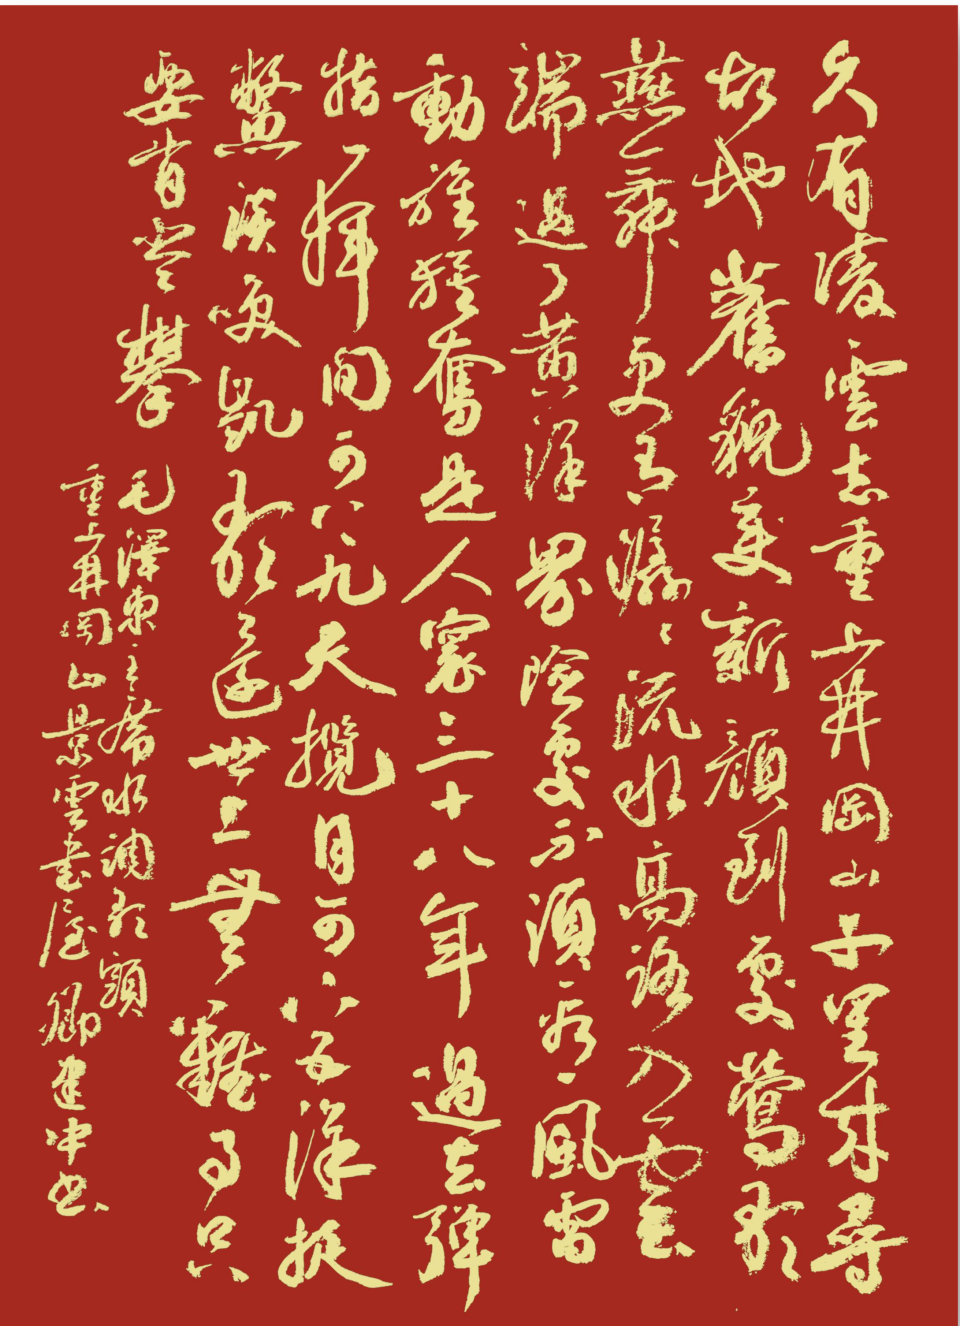 久有陵雲志重上井岡山千里來尋
故地舊貌變新顏到處鶯歌
燕舞更有潺〻流水高路入雲
端過了黃洋界險處不須看風雷
動旌旗奮是人寰三十八年過去彈
指一揮間可上九天攬月可下五洋捉
鱉談笑凱歌還世上無難事只
要肯登攀
毛澤東主席水調歌頭
重上井岡山景雲書屋卿建中書